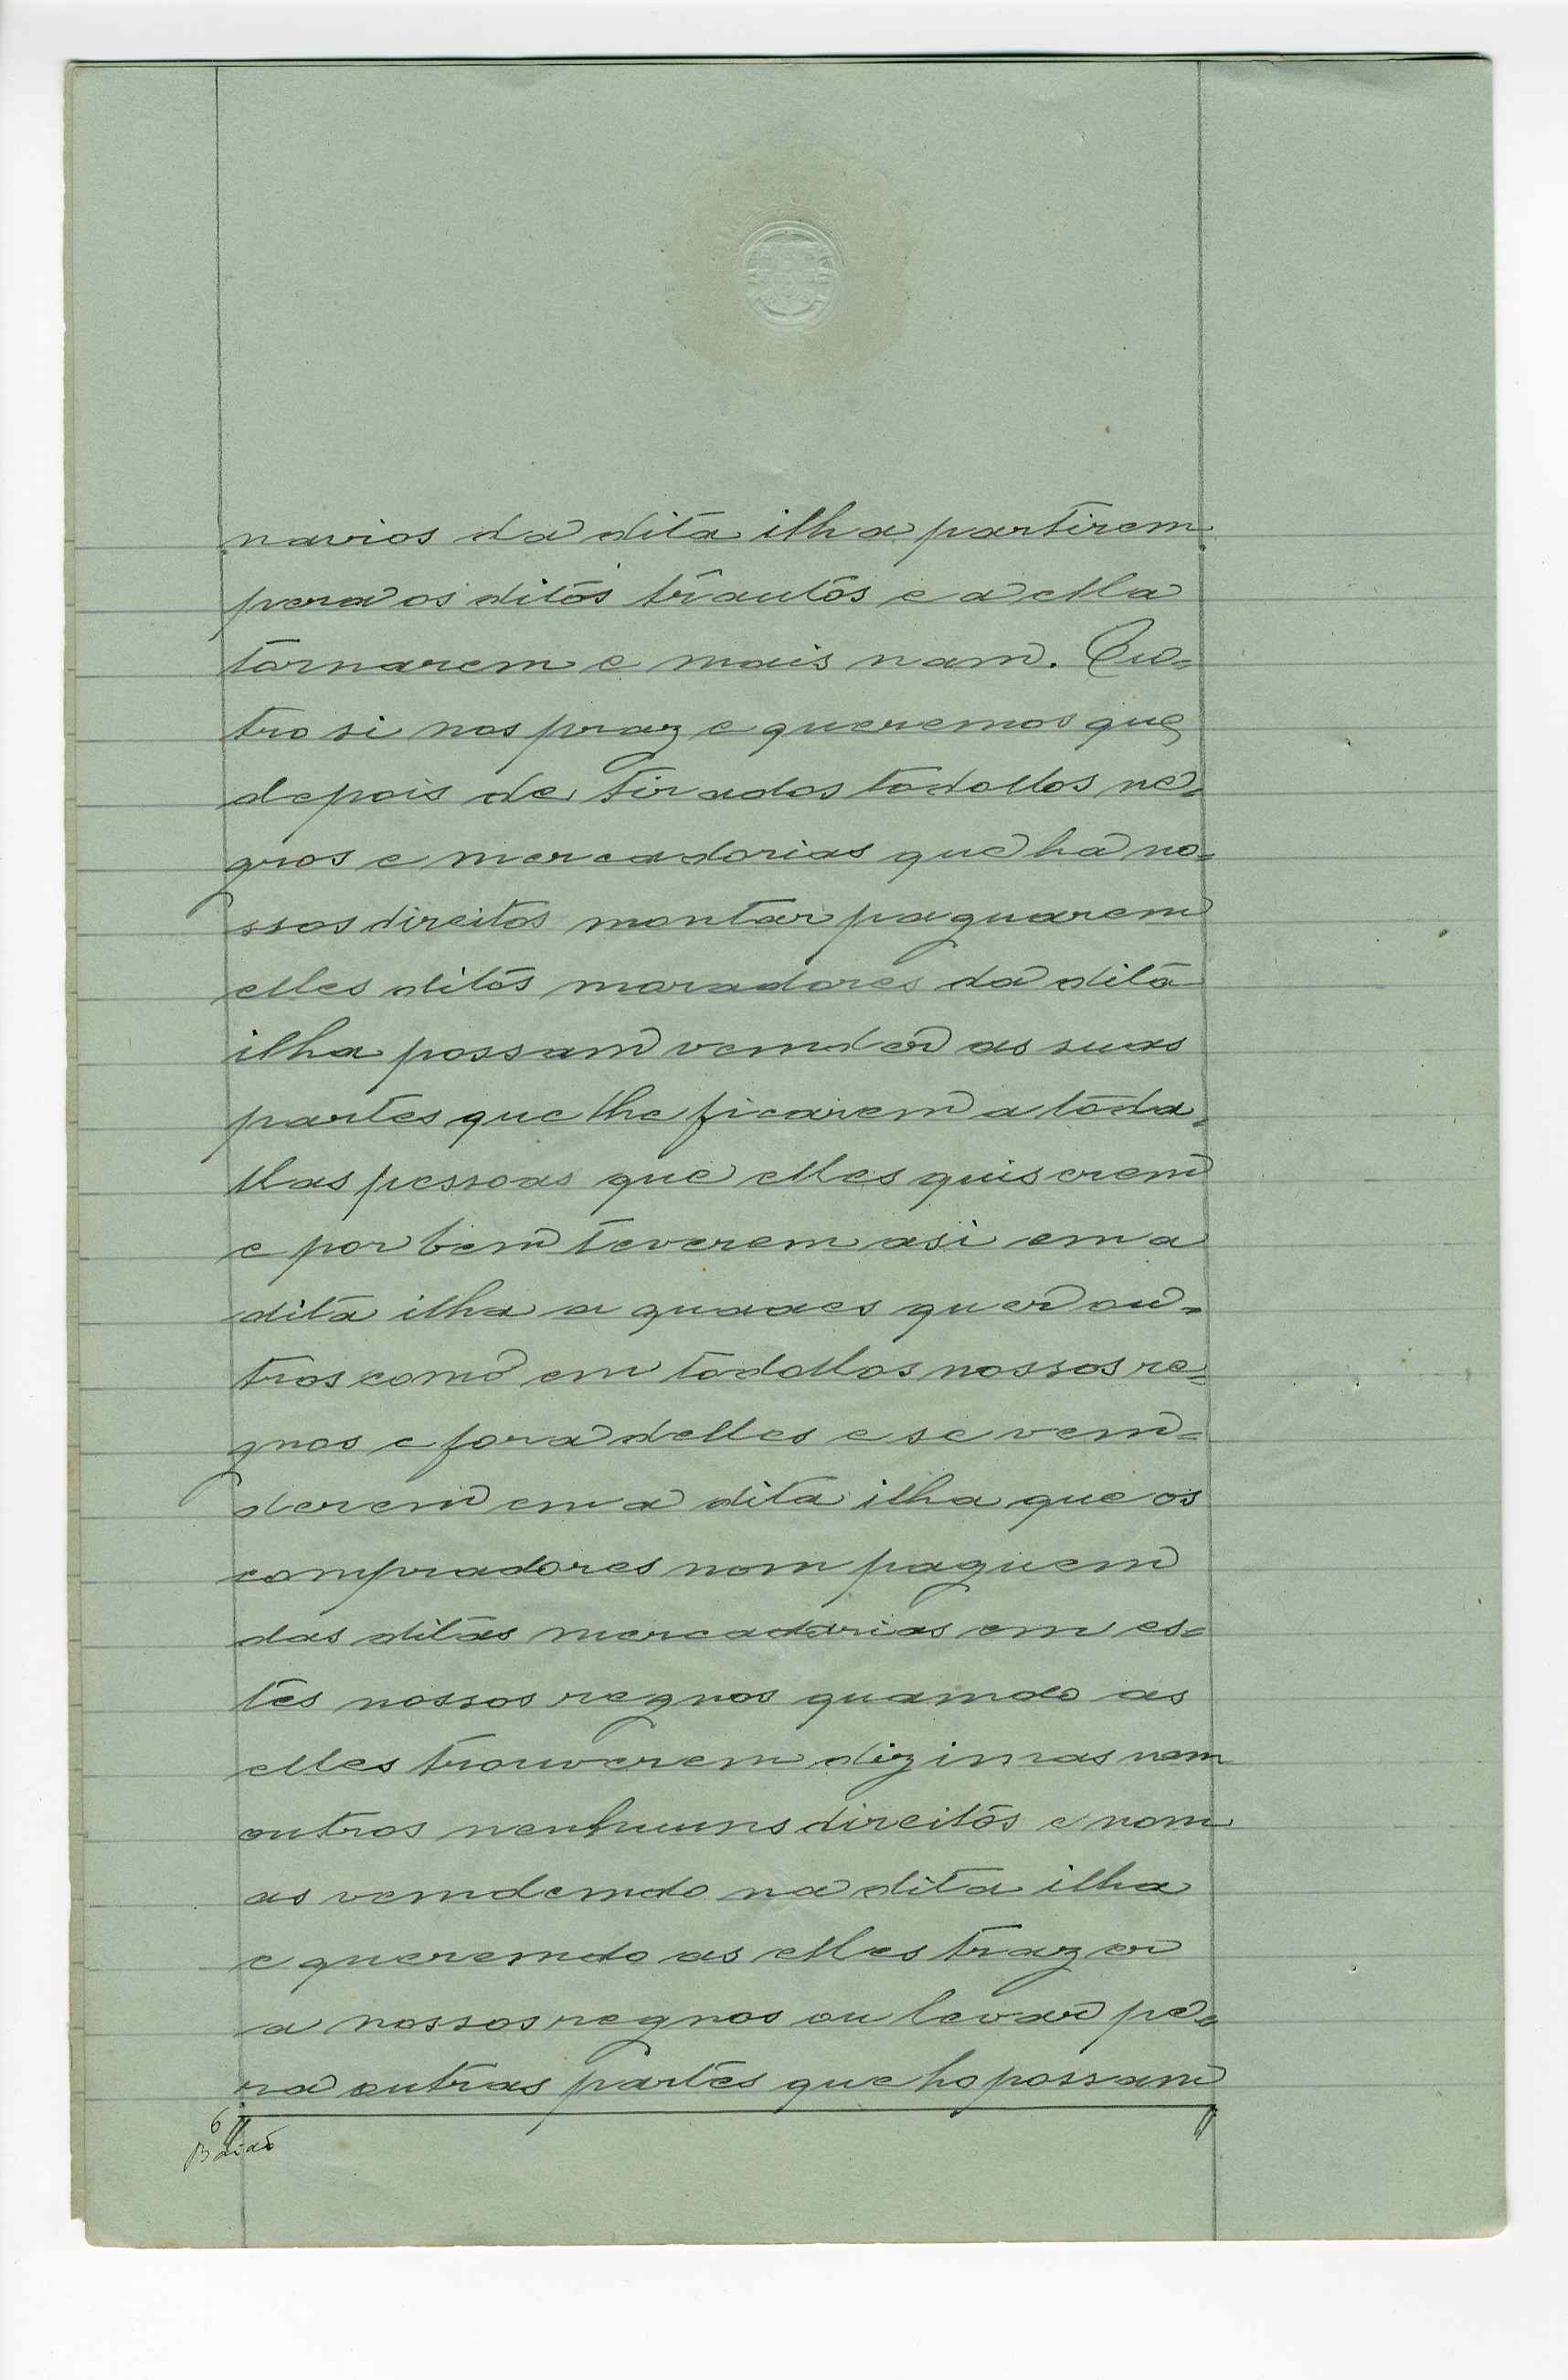 navios da dita ilha partirem
pera os ditos trautos e a ella
tornarem e mais nam. Ou=
tro si nos praz e queremos que
depois de tirados todollos ne=
gros e mercadorias que ha no=
ssos direitos montar paguarem
elles ditos moradores da dita
ilha possam vemder as suas
partes que lhe ficarem a toda=
llas pessoas que elles quiserem
e por bem teverem asi em a
dita ilha a quaaes quer ou=
tros como em todollos nossos re=
gnos e fora delles e se vem=
derem em a dita ilha que os
compradores nom paguem
das ditas mercadarias em es=
tes nossos regnos quamdo as
elles trouverem dizimas nem
outros nenhuuns direitos e nom
as vemdemdo na dita ilha
e queremdo as elles trazer
a nossos regnos ou levar pe=
ra outras partes que ho possam
6
Baião